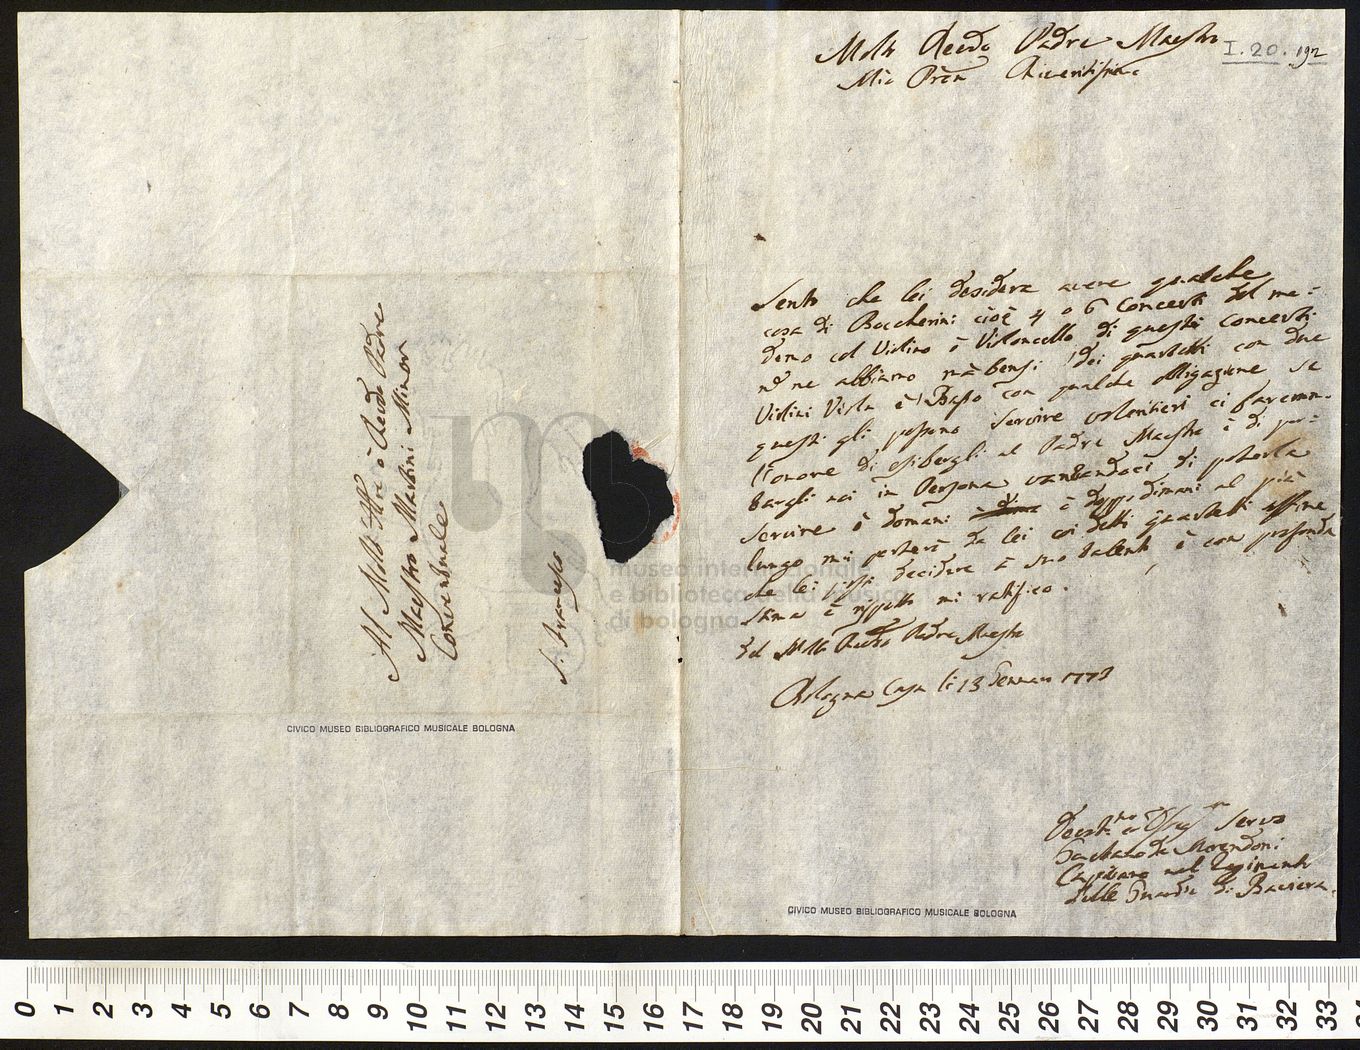 Molto Revdo Padre Maestro
Mio Prōn Riveritissimo
I. 20. 192
Sento che lei desidera avere qualche
cosa di Boccherini cioè 4 o 6 Concerti del me-
demo col Violino ò Violoncello di questi Concerti
nō ne abbiamo mà bensi dei quartetti con due
Violini Viola è Basso con qualche obligazione se
questi gli possono servire volentieri ci faremmo
l'onore di esibergli al Padre Maestro è di por-
targli noi in Persona vantandoci di poterla
servire ò domani ò doppo dimani al più
lungo mi porterò da lei coi detti quartetti affine
che lei possi decidere à suo talento è con profonda
stima è rispetto mi ratifico.
Del Molto Revdo Padre Maestro
Bologna Casa li 13 Gennaro 1773
Servo
Gaettano de Morendoni
Capitano nel Regimento
delle Guardie di Baviera.
CIVICO MUSEO BIBLIOGRAFICO MUSICALE BOLOGNA
Al Molto Ill:re è Revdo Padre
Maestro Martini Minor
Conventuale
S. Francesco
CIVICO MUSEO BIBLIOGRAFICO MUSICALE BOLOGNA
museo internazionale
e biblioteca della musica
di bologna
0 1 2 3 4 5 6 7 8 9 10 11 12 13 14 15 16 17 18 19 20 21 22 23 24 25 26 27 28 29 30 31 32 33